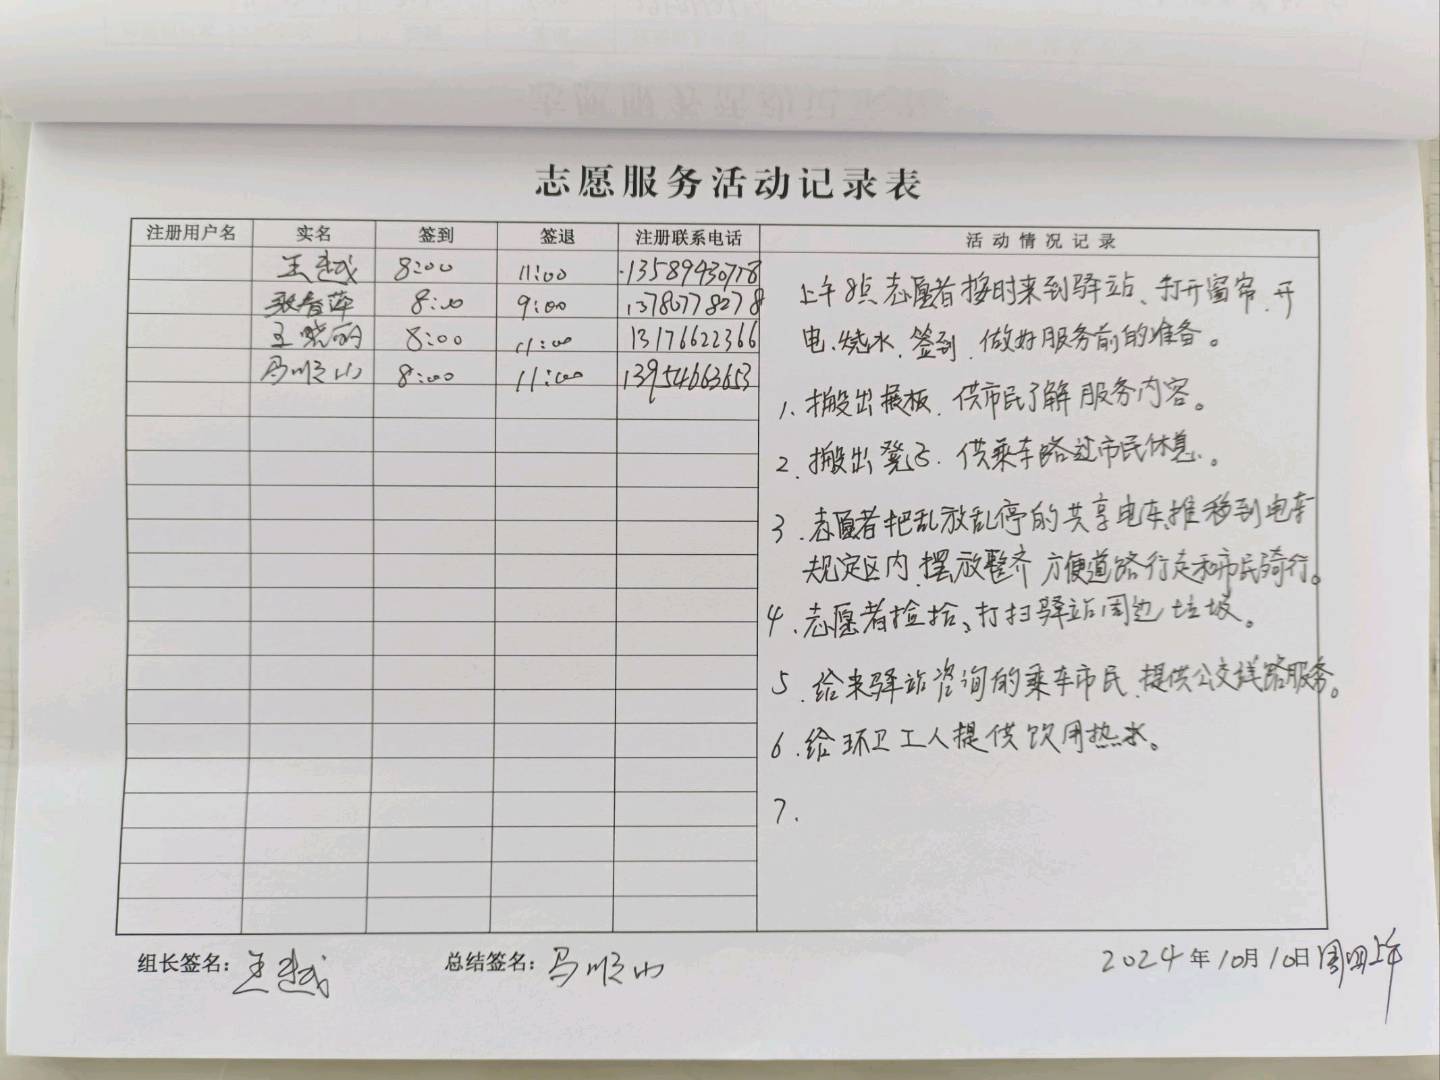 志愿服务活动记录表
注册用户名 实名 签到 签退 注册联系电话 活动情况记录
王越 8:00 11:00 13589430778
8:00 9:00 13780778278
王晓丽 8:00 11:00 13176622366
马顺山 8:00 11:00 13954663653
上午8点志愿者按时来到驿站、打开窗帘、开
电、烧水、签到、做好服务前的准备。
1、搬出展板、供市民了解服务内容。
2、搬出凳子、供乘车路过市民休息。
3、志愿者把乱放乱停的共享电车,推移到电车
规定区内、摆放整齐方便道路行走和市民骑行。
4、志愿者捡拾、打扫驿站周边垃圾。
5、给来驿站咨询的乘车市民、提供公交线路服务。
6、给环卫工人提供饮用热水。
7.
组长签名：王越 总结签名：马顺山 2024年10月10日周四上午